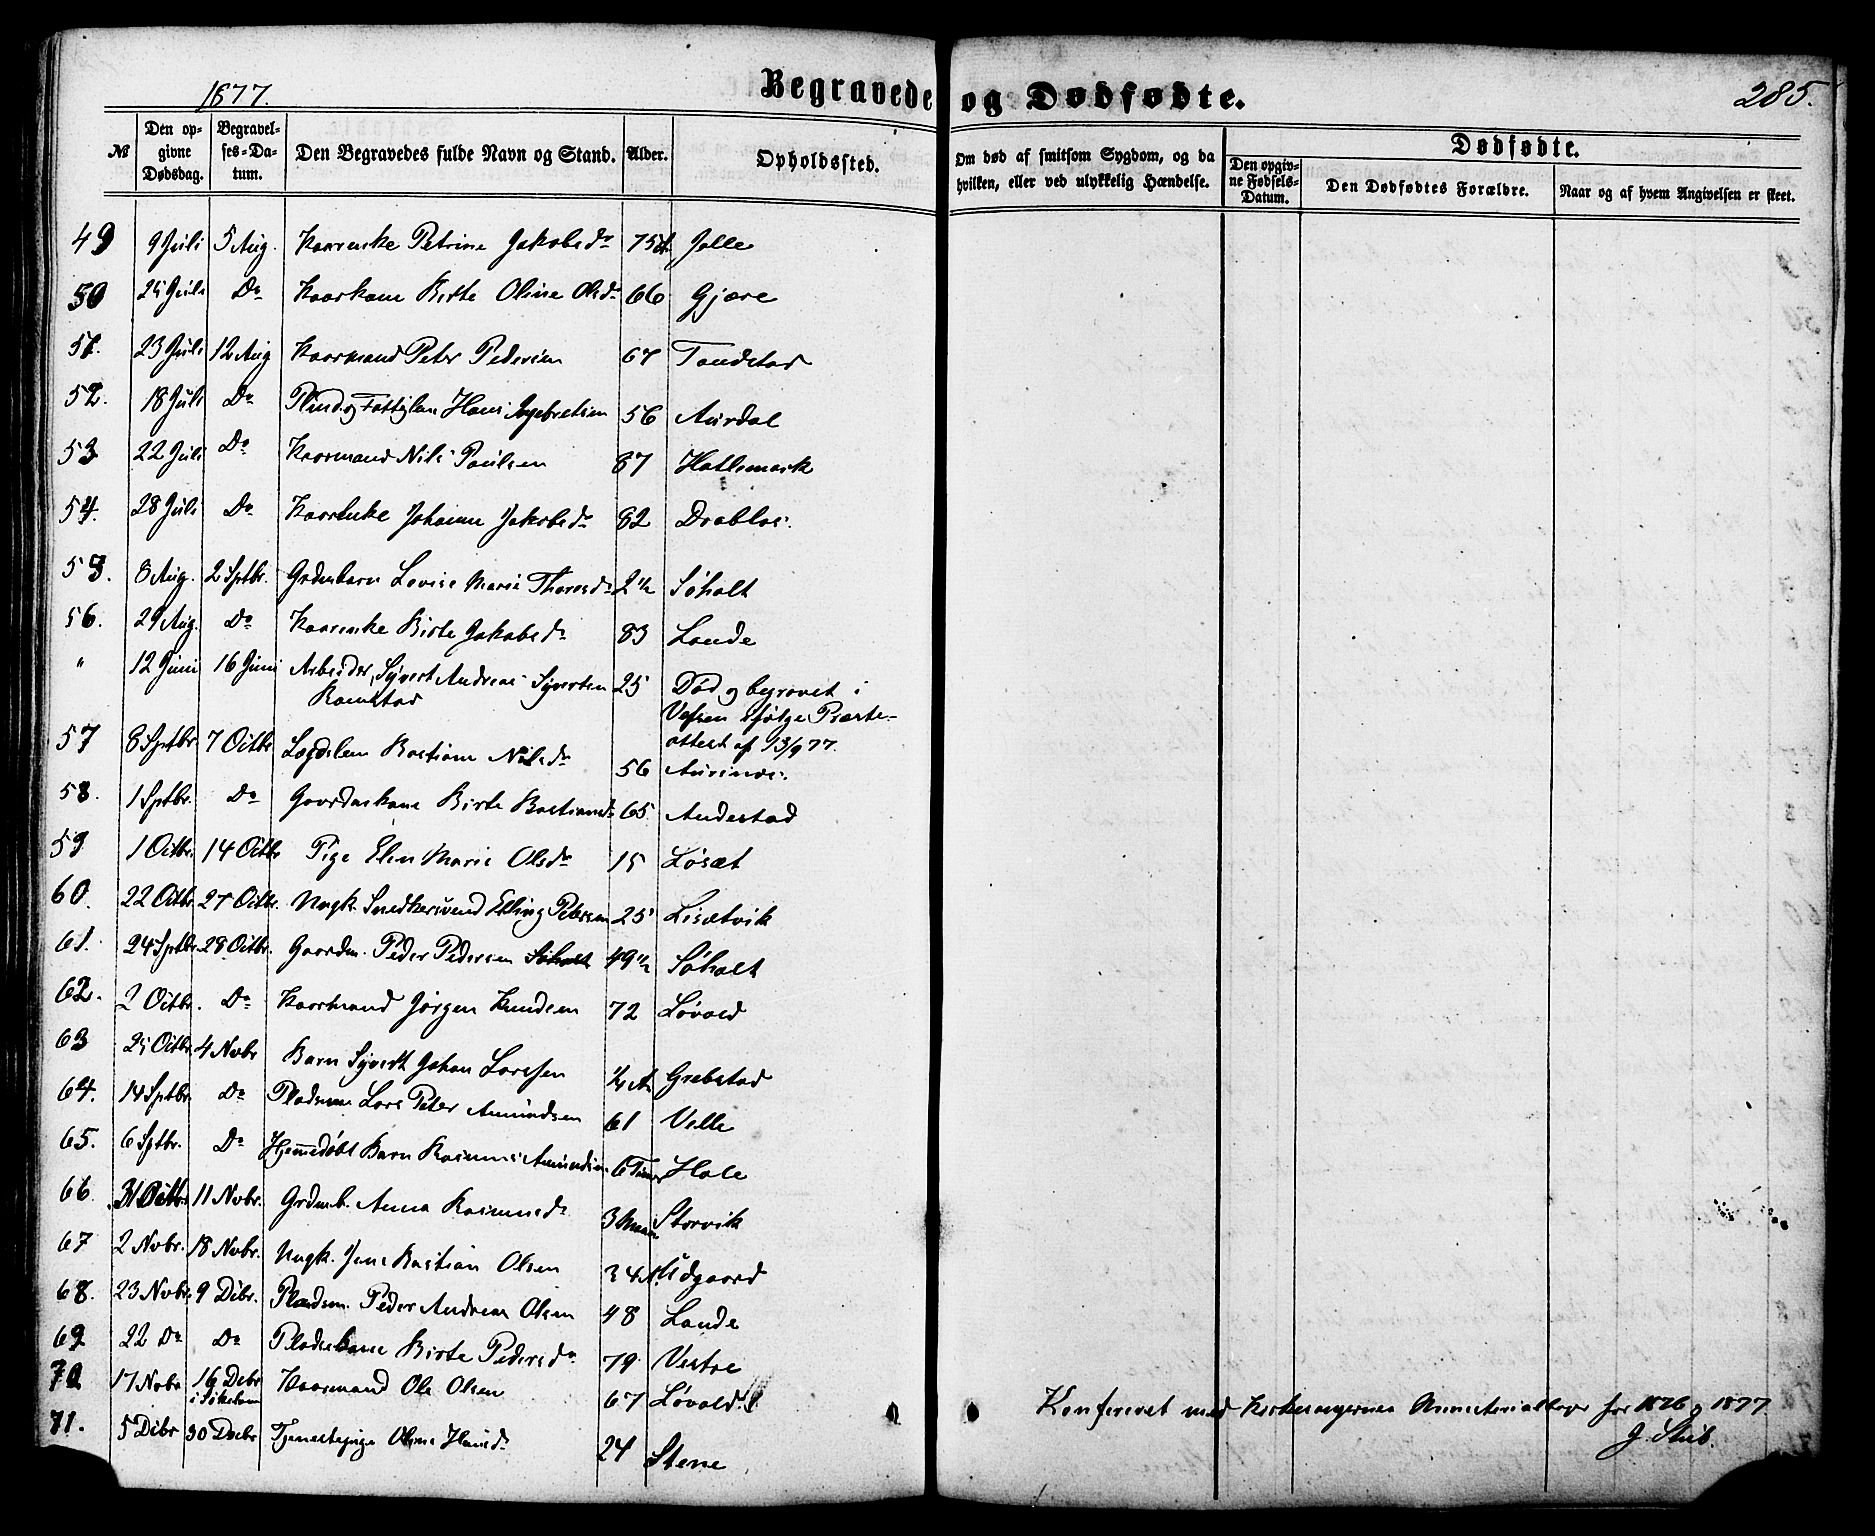 1877.
Begravede og Dødfødte.
285.
№
Den op-
givne
Dødsdag.
Begravel-
ses-Da-
tum.
Den Begravedes fulde Navn og Stand.
Alder.
Opholdssted.
Om død af smitsom Sygdom, og da
hvilken, eller ved ulykkelig Hændelse.
Dødfødte.
Den opgiv-
ne Fødsels-
Datum.
Den Dødfødtes Forældre.
Naar og af hvem Angivelsen er skeet.
49 9 Juli 5 Aug. Kaarenke Petrine Jakobsdr 75 Jolle
50 25 Juli Do Kaarkone Birte Oline Olsdr 66 Gjære
51. 23 Juli 12 Aug Kaarmand Peter Pedersen 67 Tandstad
52. 18 Juli Do Blind og Fattiglem Hans Ingebretsen 56 Aurdal
53 22 Juli Do Kaarmand Nils Paulsen 87 Hatlemark
54. 28 Juli Do Kaarenke Johanne Jakobsdr 82 Drabløs.
55. 8 Aug. 2 Sptbr. Grdmbarn Lovise Marie Thoresdr 2 1/2 Søholt
56. 29 Aug. Do Kaarenke Birte Jakobsdr 83 Lande
" 12 Juni 16 Juni Arbeider, Syvert Andreas Syvertsen 25 Død og begravet i
Ramstad Vefsen ifølge Præste-
attest af 13/9 77.
57 8 Sptbr 7 Octbr Lægdslem Bastiane Nilsdr 56 Aursnes.
58. 1 Sptbr. Do Gaardmkone Birte Bastiansdr 65 Andestad
59 1 Octbr. 14 Octbr Pige Elen Marie Olsdr 15 Løsæt
60. 22 Octbr. 27 Octbr. Ungk. Snedkersvend Elling Petersen 25 Lisætvik
61. 24 Sptbr 28 Octbr. Gaardm. Peder Pedersen Søholt 49 1/2 Søholt
62. 2 Octbr. Do Kaarmand Jørgen Knudsen 72 Løvold
63 25 Octbr. 4 Nvbr Barn Syvert Johan Larssen 1/4 A. Grebstad
64. 14 Sptbr. Do Pladsm. Lars Peter Amundsen 61 Velle
65. 6 Sptbr. Do Hjemmedøbt Barn Rasmus Amundsen 6 Timer Hole
66. 31 Octbr 11 Nvbr. Grdmb. Anna Rasmusdr 3 Maan Storvik
67 2 Nvbr. 18 Nvbr. Ungk. Jens Bastian Olsen 34 A. Udgaard
68. 23 Nvbr. 9 Dcbr. Pladsm. Peder Andreas Olsen 48 Lande
69 22 Do Do Pladsekone Birte Pedersdr 79 Vestre
70 17 Nvbr 16 Dcbr Kaarmand Ole Olsen 67 Løvold
71. 5 Dcbr 30 Decbr Tjenestepige Oline Hansdr 24 Stene
Konfereret med Kirkesangernes Ministerialbøger for 1876 og 1877
J. Stub.